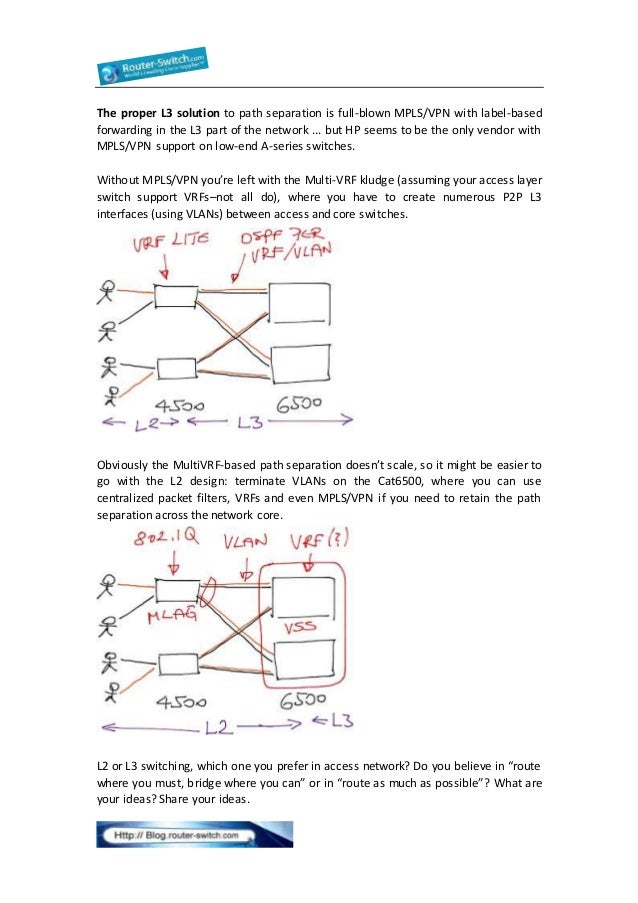 Router-Switch.com
The proper L3 solution to path separation is full-blown MPLS/VPN with label-based
forwarding in the L3 part of the network … but HP seems to be the only vendor with
MPLS/VPN support on low-end A-series switches.
Without MPLS/VPN you’re left with the Multi-VRF kludge (assuming your access layer
switch support VRFs–not all do), where you have to create numerous P2P L3
interfaces (using VLANs) between access and core switches.
VRF LITE
OSPF PER
VRF/VLAN
4500
6500
L2
L3
Obviously the MultiVRF-based path separation doesn’t scale, so it might be easier to
go with the L2 design: terminate VLANs on the Cat6500, where you can use
centralized packet filters, VRFs and even MPLS/VPN if you need to retain the path
separation across the network core.
802.1Q
VLAN
VRF(?)
MLAG
VSS
4500
6500
L2
L3
L2 or L3 switching, which one you prefer in access network? Do you believe in “route
where you must, bridge where you can” or in “route as much as possible”? What are
your ideas? Share your ideas.
Http:// Blog.router-switch.com